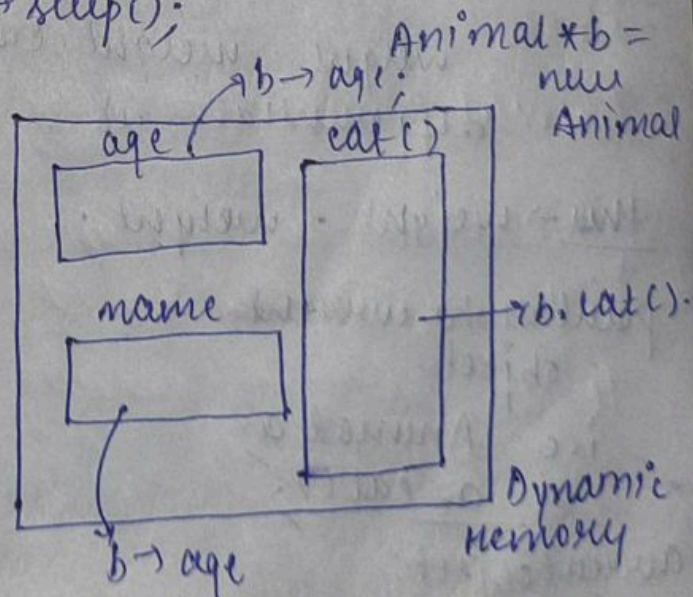 sleep();
Animal *b =
new
Animal
b → age;
age
eat()
name
b. eat().
Dynamic
Memory
b → age